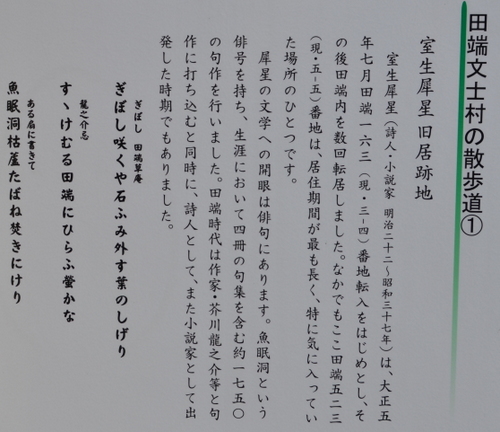 田端文士村の散歩道①
室生犀星旧居跡地
室生犀星（詩人・小説家 明治二十二～昭和三十七年）は、大正五
年七月田端一六三（現・三-四）番地転入をはじめとし、そ
の後田端内を数回転居しました。なかでもここ田端五二三
（現・五-五）番地は、居住期間が最も長く、特に気に入ってい
た場所のひとつです。
犀星の文学への開眼は俳句にあります。魚眠洞という
俳号を持ち、生涯において四冊の句集を含む約一七五〇
の句作を行いました。田端時代は作家・芥川龍之介等と句
作に打ち込むと同時に、詩人として、また小説家として出
発した時期でもありました。
ぎぼし 田端草庵
ぎぼし咲くや石ふみ外す葉のしげり
龍之介忌
すゝけむる田端にひらふ螢かな
ある扇に書きて
魚眠洞枯蘆たばね焚きにけり